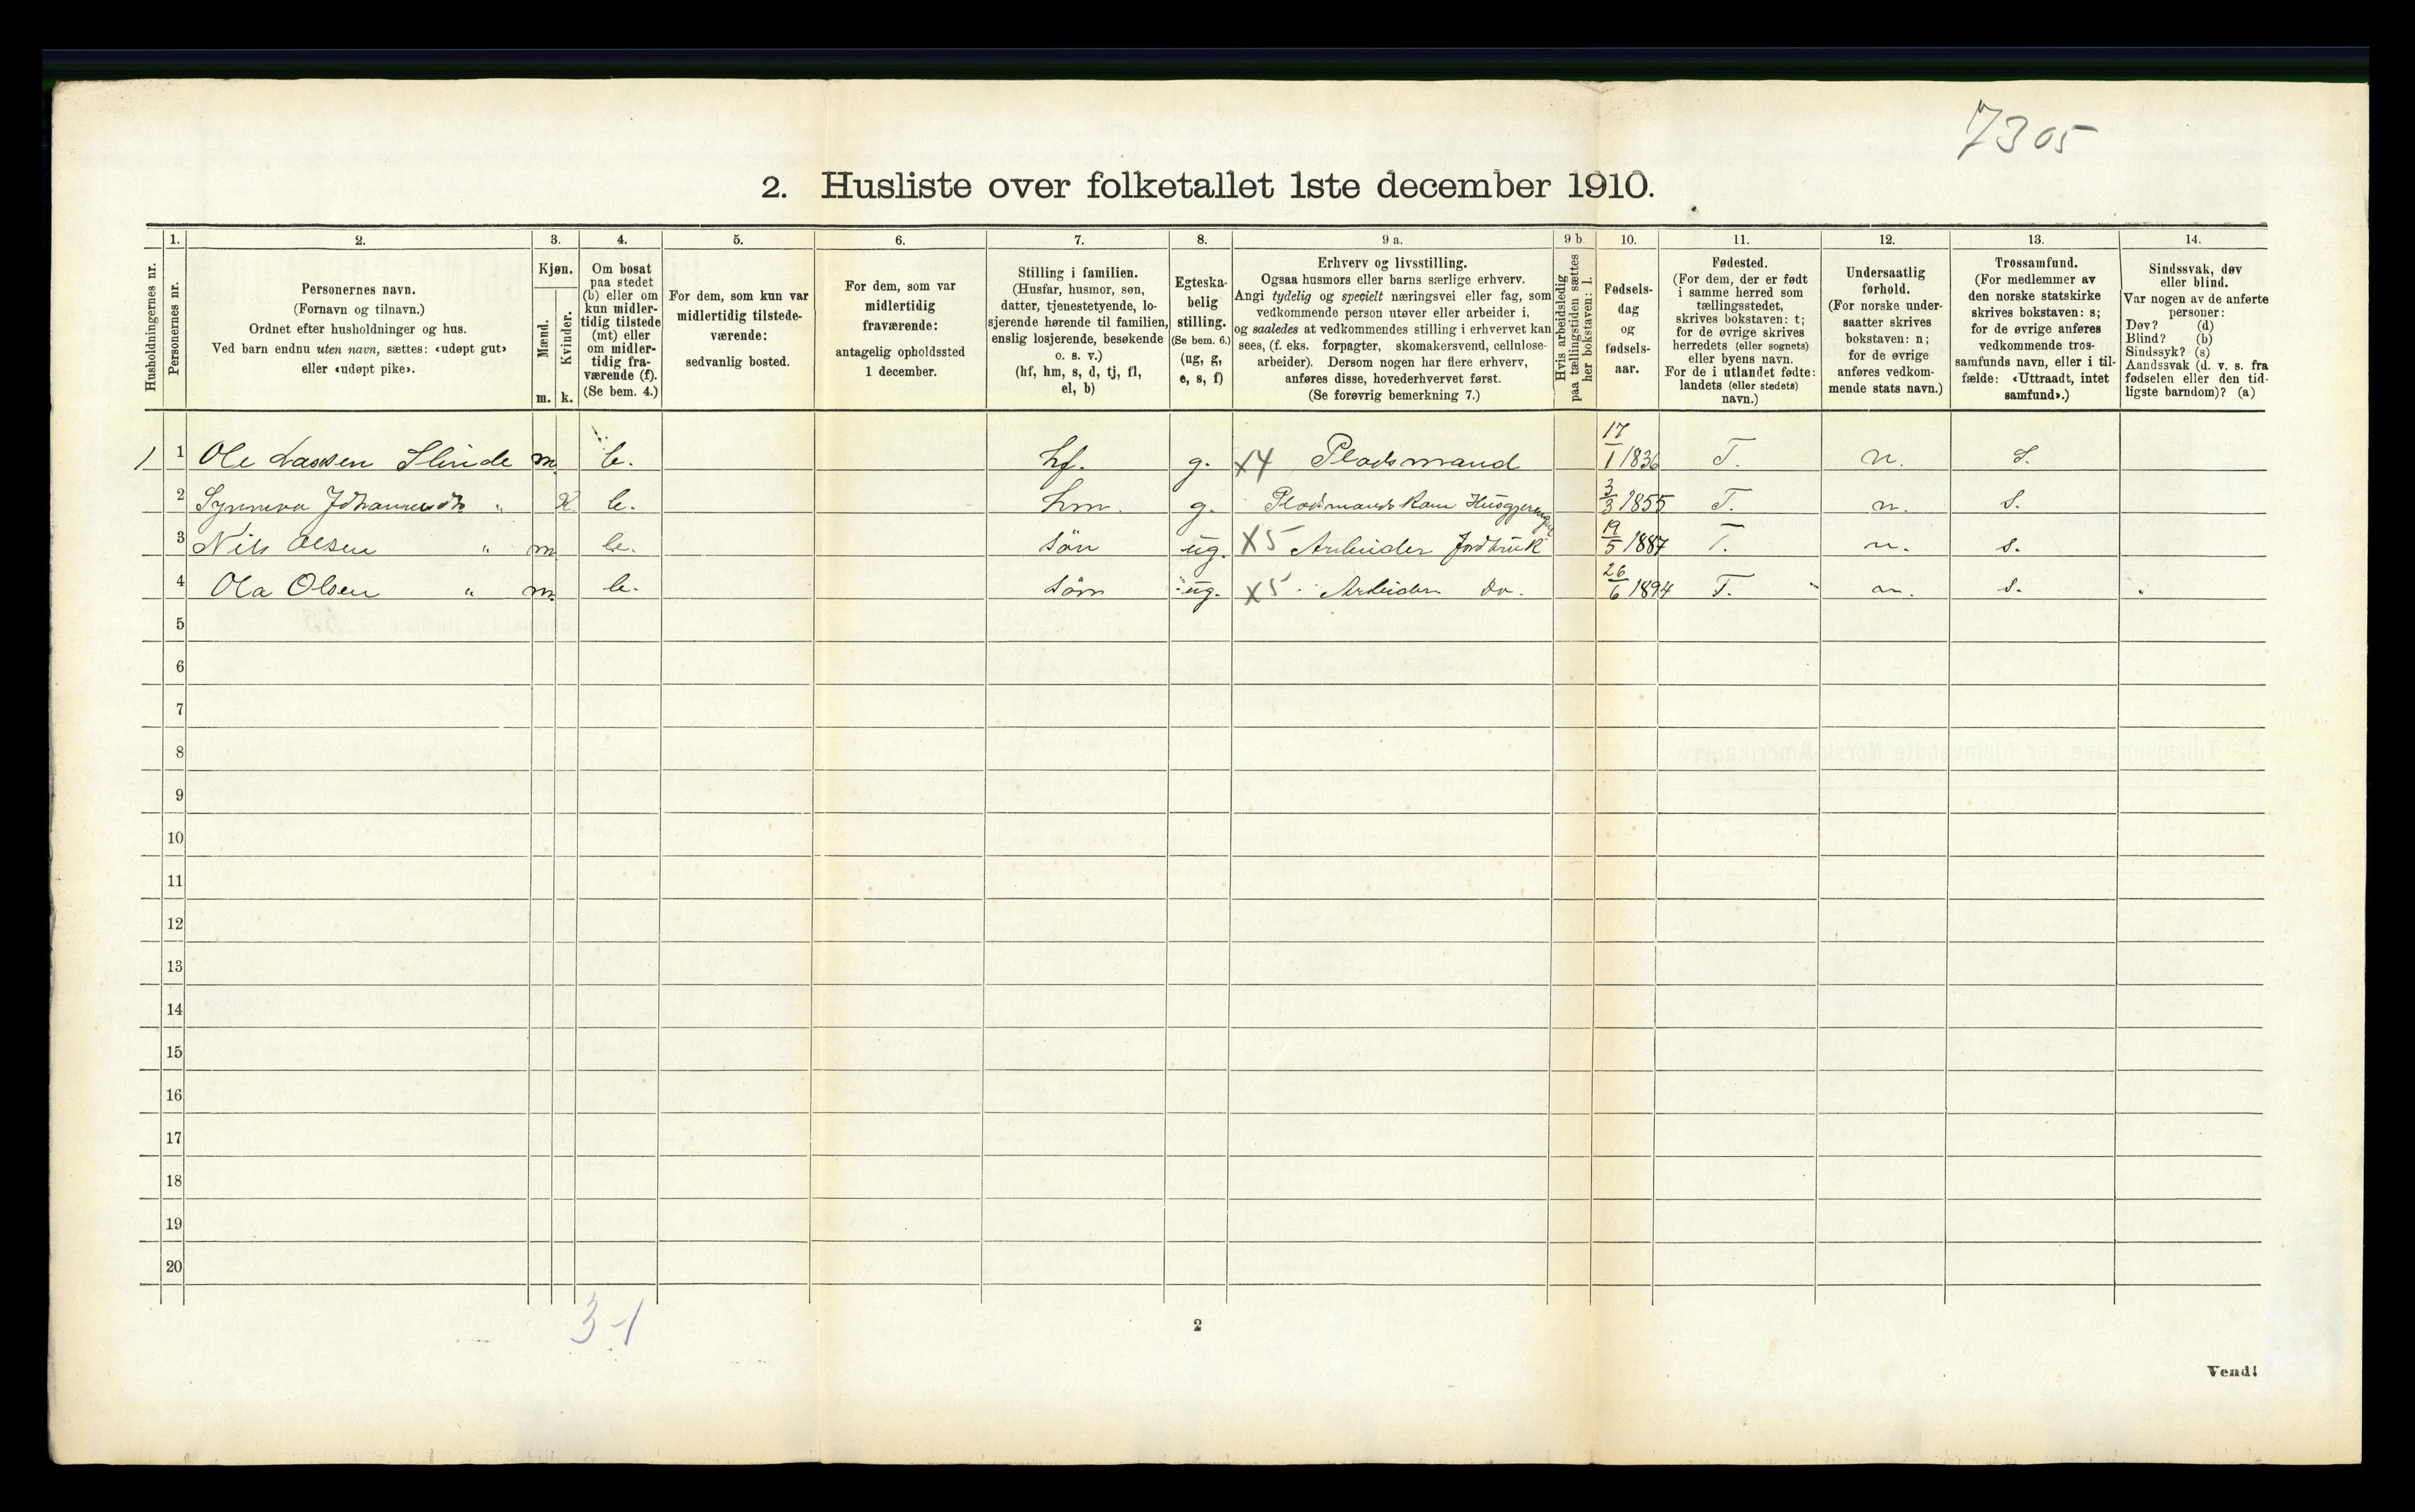 7305
2. Husliste over folketallet 1ste december 1910.
Husholdningernes nr.
1.
Personernes nr.
2.
Personernes navn.
(Fornavn og tilnavn.)
Ordnet efter husholdninger og hus.
Ved barn endnu uten navn, sættes: «udøpt gut»
eller «udøpt pike».
3.
Kjøn.
Mænd.
Kvinder.
m. k.
4.
Om bosat
paa stedet
(b) eller om
kun midler-
tidig tilstede
(mt) eller
om midler-
tidig fra-
værende (f).
(Se bem. 4.)
5.
For dem, som kun var
midlertidig tilstede-
værende:
sedvanlig bosted.
6.
For dem, som var
midlertidig
fraværende:
antagelig opholdssted
1 december.
7.
Stilling i familien.
(Husfar, husmor, søn,
datter, tjenestetyende, lo-
sjerende hørende til familien,
enslig losjerende, besøkende
o. s. v.)
(hf, hm, s, d, tj, fl,
el, b)
8.
Egteska-
belig
stilling.
(Se bem. 6.)
(ug, g,
e, s, f)
9 a.
Erhverv og livsstilling.
Ogsaa husmors eller barns særlige erhverv.
Angi tydelig og specielt næringsvei eller fag, som
vedkommende person utøver eller arbeider i,
og saaledes at vedkommendes stilling i erhvervet kan
sees, (f. eks. forpagter, skomakersvend, cellulose-
arbeider). Dersom nogen har flere erhverv,
anføres disse, hovederhvervet først.
(Se forøvrig bemerkning 7.)
9 b
Hvis arbeidsledig
paa tællingstiden sættes
her bokstaven: l.
10.
Fødsels-
dag
og
fødsels-
aar.
11.
Fødested.
(For dem, der er født
i samme herred som
tællingsstedet,
skrives bokstaven: t;
for de øvrige skrives
herredets (eller sognets)
eller byens navn.
For de i utlandet fødte:
landets (eller stedets)
navn.)
12.
Undersaatlig
forhold.
(For norske under-
saatter skrives
bokstaven: n;
for de øvrige
anføres vedkom-
mende stats navn.)
13.
Trossamfund.
(For medlemmer av
den norske statskirke
skrives bokstaven: s;
for de øvrige anføres
vedkommende tros-
samfunds navn, eller i til-
fælde: «Uttraadt, intet
samfund».)
14.
Sindssvak, døv
eller blind.
Var nogen av de anførte
personer:
Døv? (d)
Blind? (b)
Sindssyk? (s)
Aandssvak (d. v. s. fra
fødselen eller den tid-
ligste barndom)? (a)
1 1 Ole Lassen Slinde m. b. hf. g. X4 Pladsmand 17/1 1836 T. n. S.
2 Synneva " K. b. hm. g. Pladsmands Kone 3/3 1855 T. n. s.
3 Nils Olsen " m b. sön ug. X5 Arbeider Jordbruk 19/5 1887 T. n. s.
4 Ola Olsen " m. b. sön ug. X5 Arbeider do. 26/6 1894 T. n. s.
5
6
7
8
9
10
11
12
13
14
15
16
17
18
19
20
3-1
2
Vend!